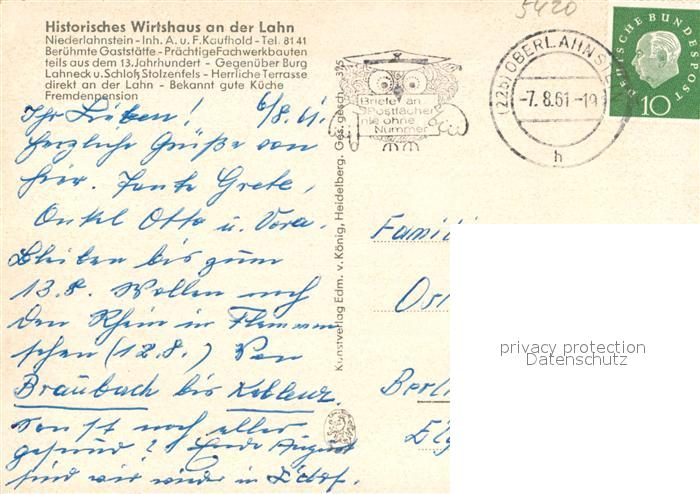 5420
Historisches Wirtshaus an der Lahn
Niederlahnstein - Inh. A. u. F. Kaufhold - Tel. 8141
Berühmte Gaststätte - Prächtige Fachwerkbauten
teils aus dem 13. Jahrhundert - Gegenüber Burg
Lahneck u. Schloß Stolzenfels - Herrliche Terrasse
direkt an der Lahn - Bekannt gute Küche
Fremdenpension
Ihr Lieben! 6/8.61.
Herzliche Grüße von
hier. Tante Grete,
Onkel Otto u. Dora.
Bleiben bis zum
13.8. Wollen noch
den Rhein in Flammen
sehen (12.8.) Von
Braubach bis Koblenz.
Sonst noch alles
gesund? Ende August
sind wir wieder in
Kunstverlag Edm. v. König, Heidelberg. Ges. gesch. 395
Briefe an
Postfächer
nie ohne
Nummer
(22b) OBERLAHNS
-7.8.61-19
h
DEUTSCHE BUNDESPOST
10
Famili
Os
Berli
privacy protection
Datenschutz